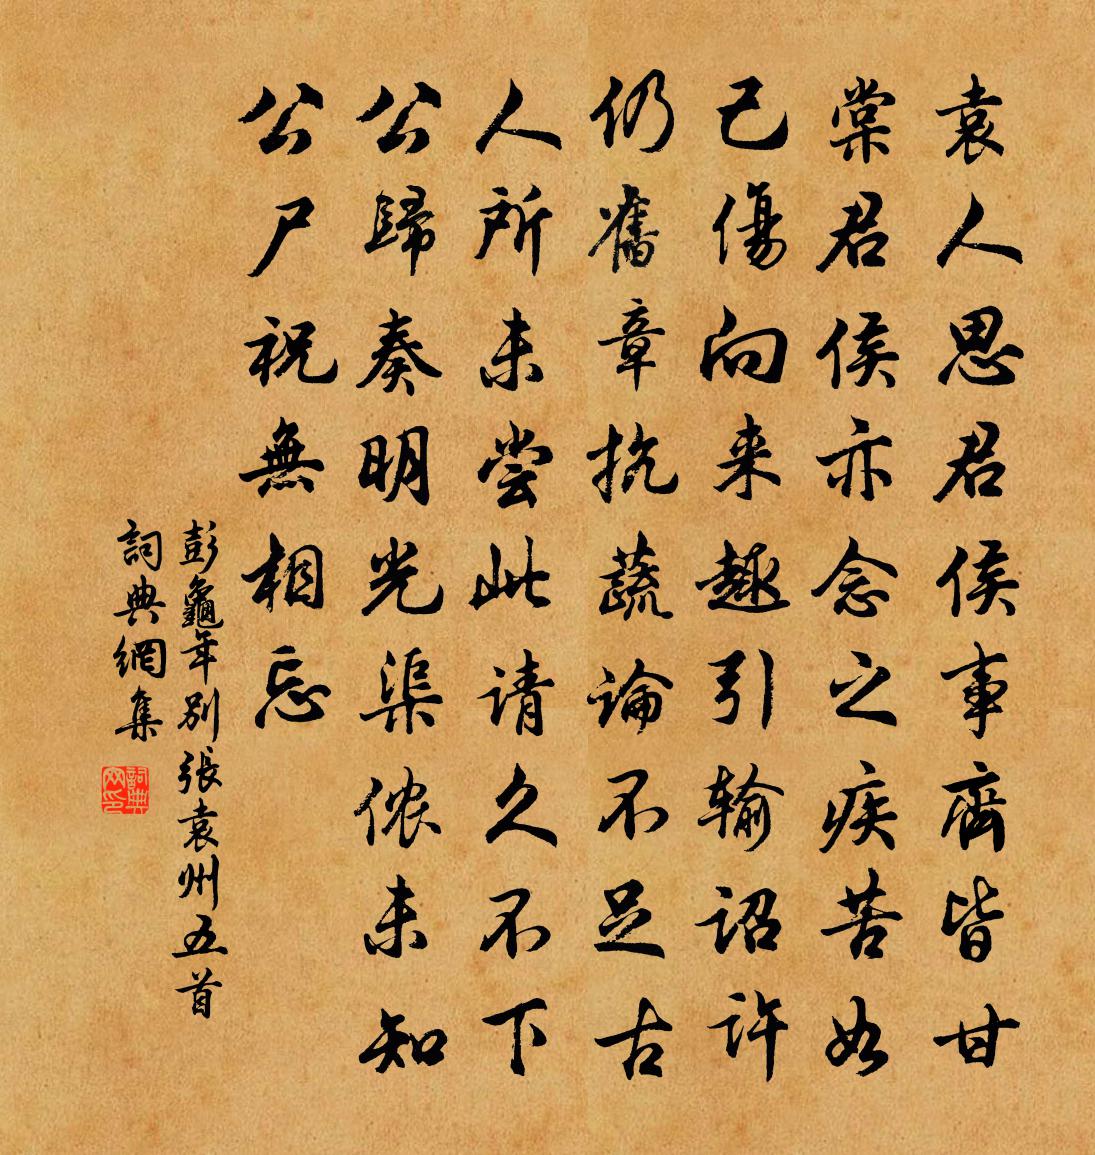 袁人思君侯事齊皆甘
棠君侯亦念之疾苦如
己傷向来趣引输诏许
仍舊章抗蔬論不足古
人所未尝此请久不下
公歸奏明光渠侬未知
公尸祝無相忘
彭龜年别張袁州五首
詞典網集
詞典网印